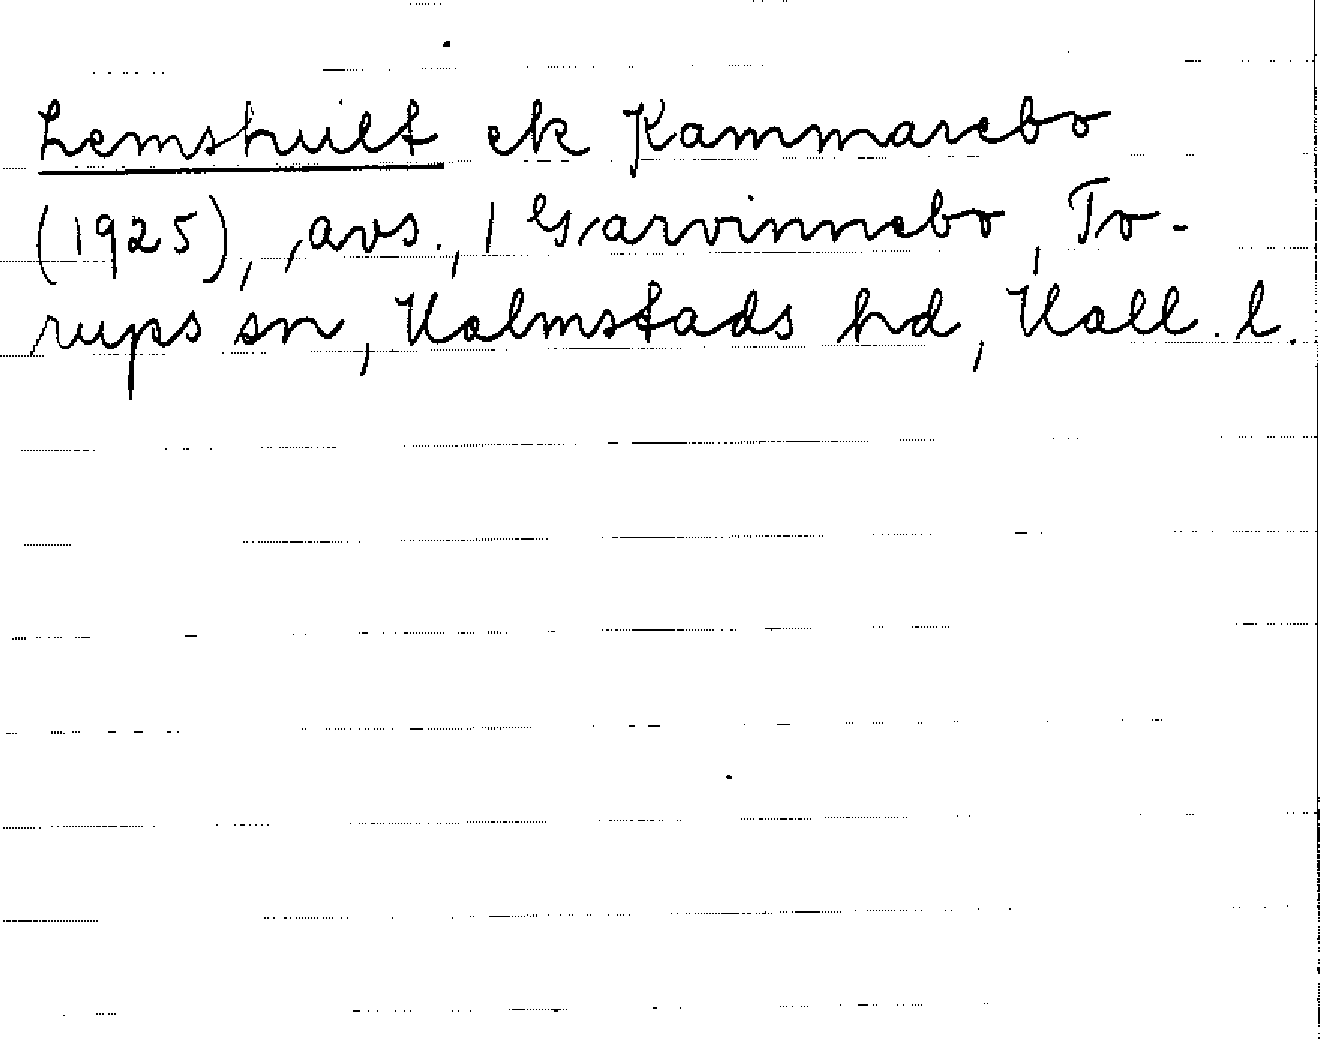 Lemshult ek Kammarebo
(1925), avs., 1 Garvinnebo, To-
rups sn, Halmstads hd, Hall. l.